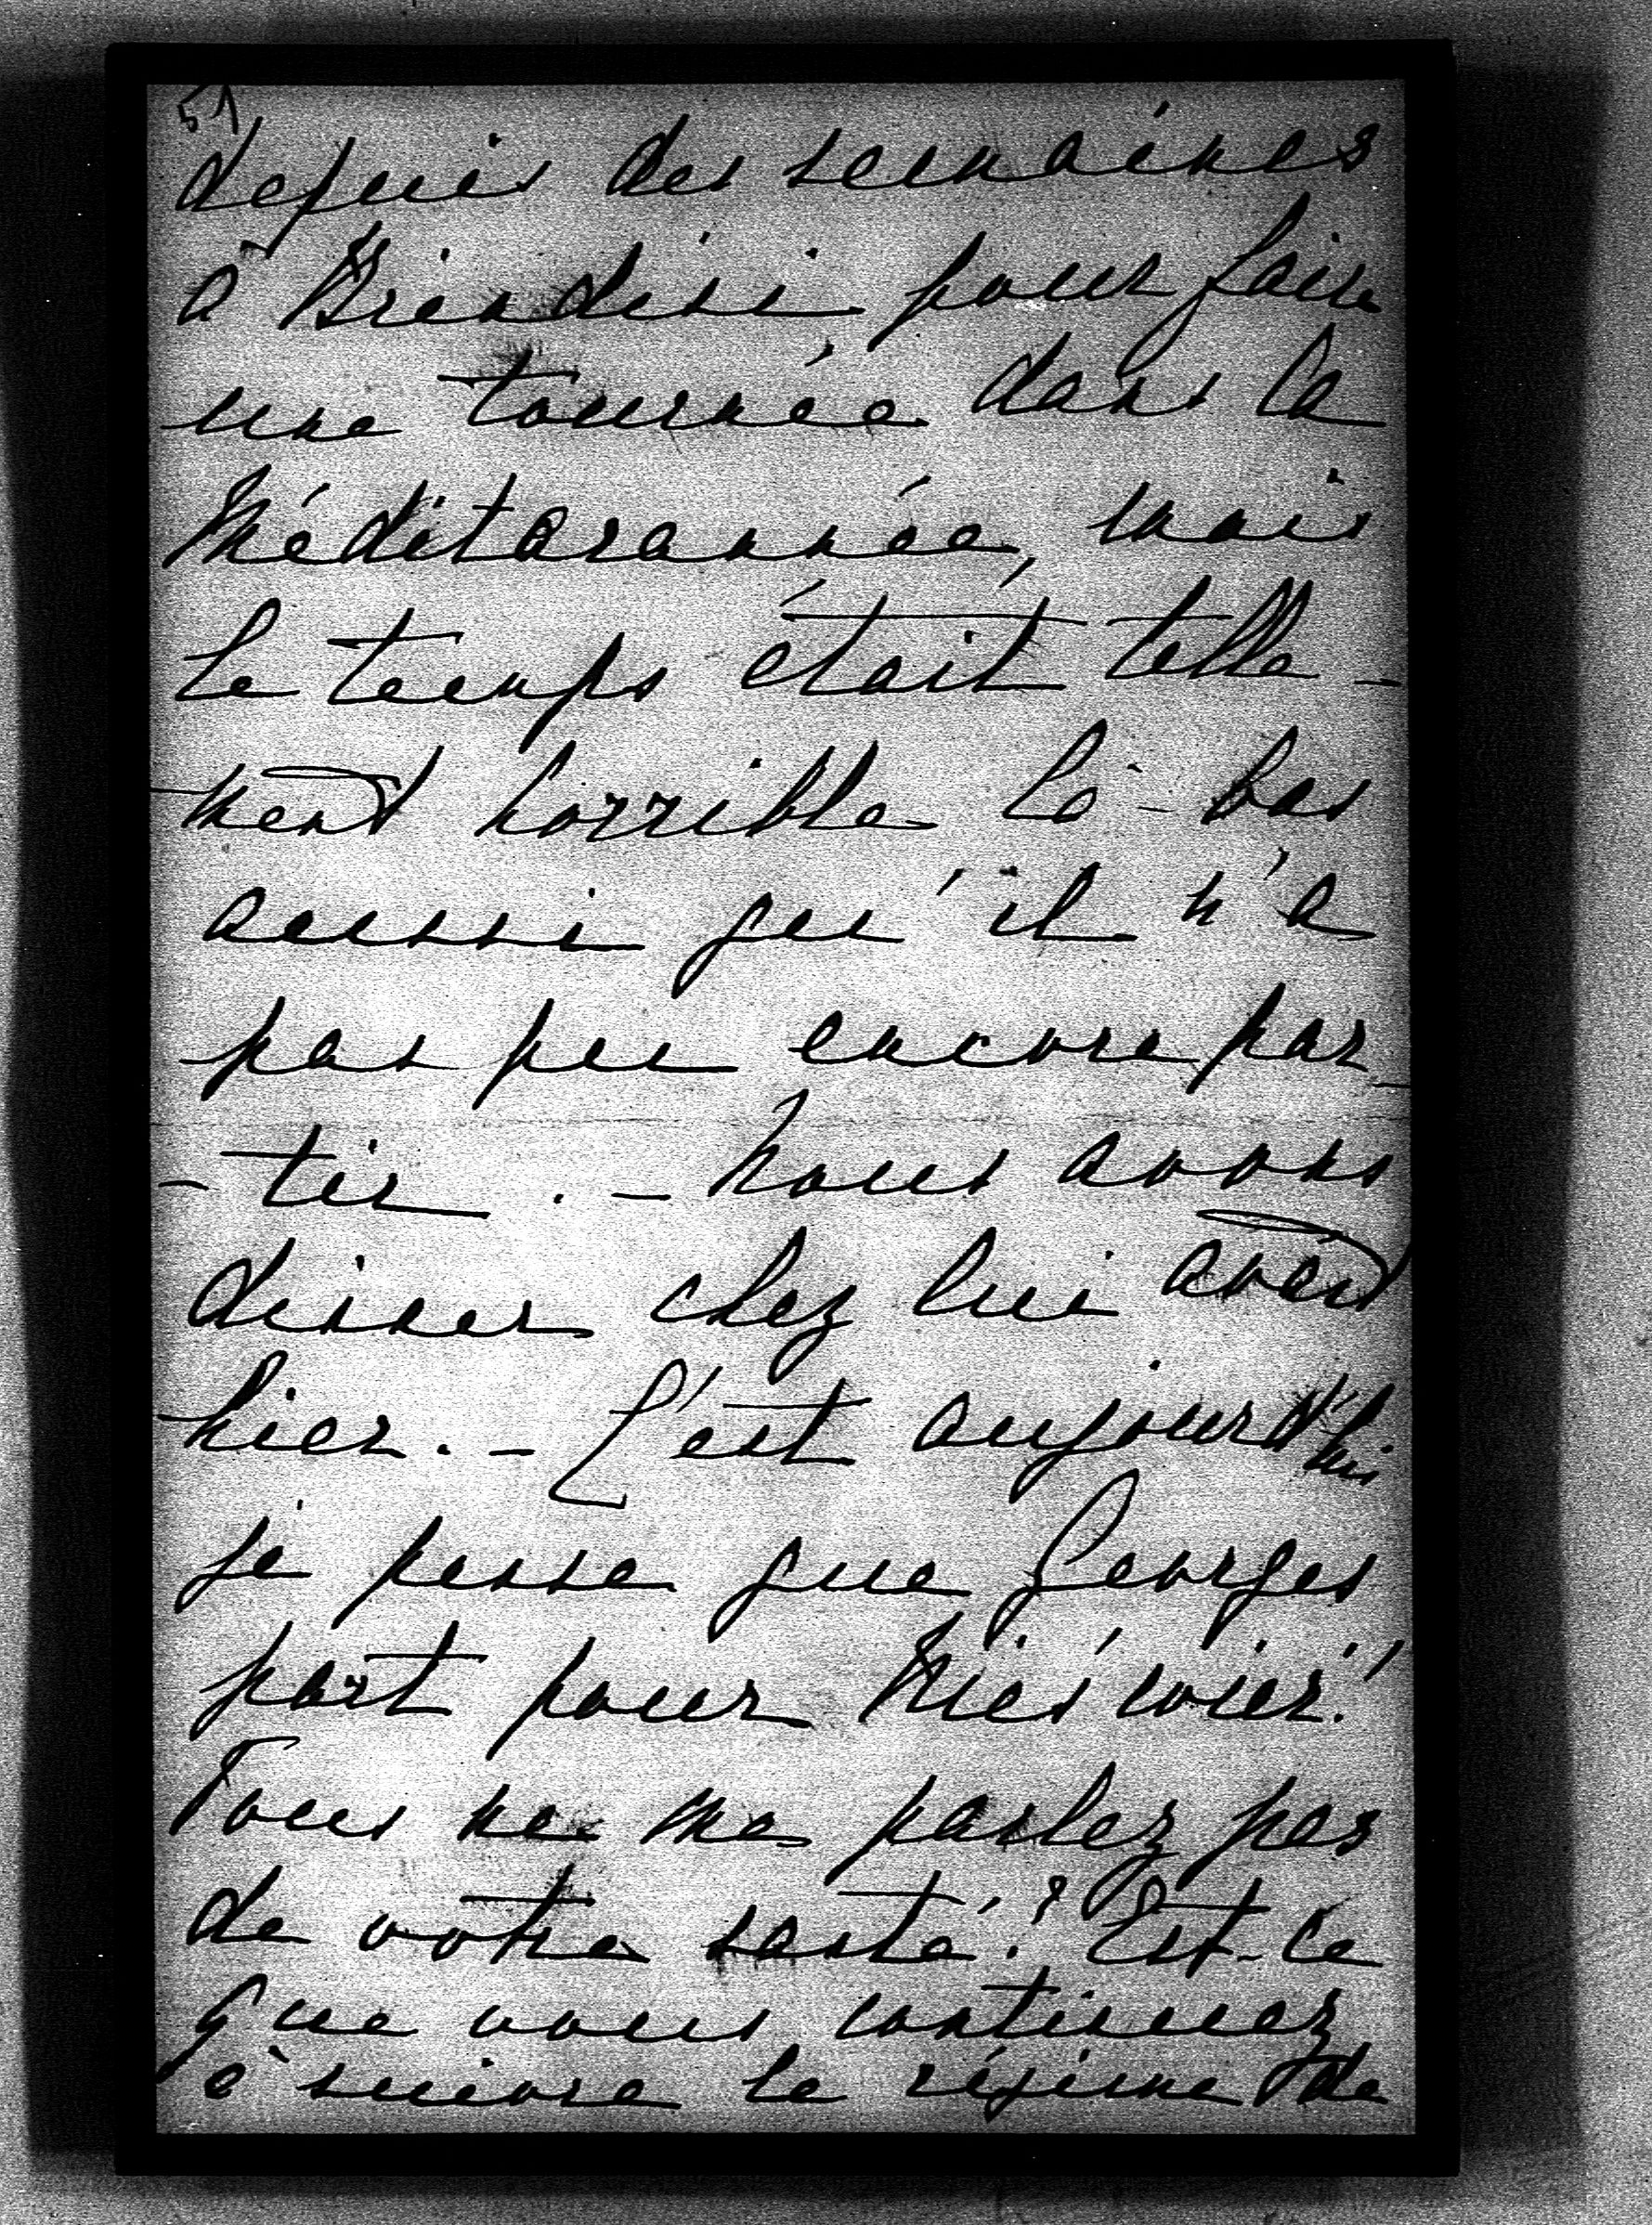 51
depuis des semaines
à Brindisi pour faire
une tournée dans la
Méditarannée, mais
le temps était telle-
ment horrible là-bas
aussi qu'il n'a
pas pu encore par-
-tir. - Nous avons
diner chez lui avant
hier. - C'est aujourd'hui
je pense que Georges
part pour
Vous ne me parlez pas
de votre santé? Est-ce
que vous continuez
à suivre le régime de